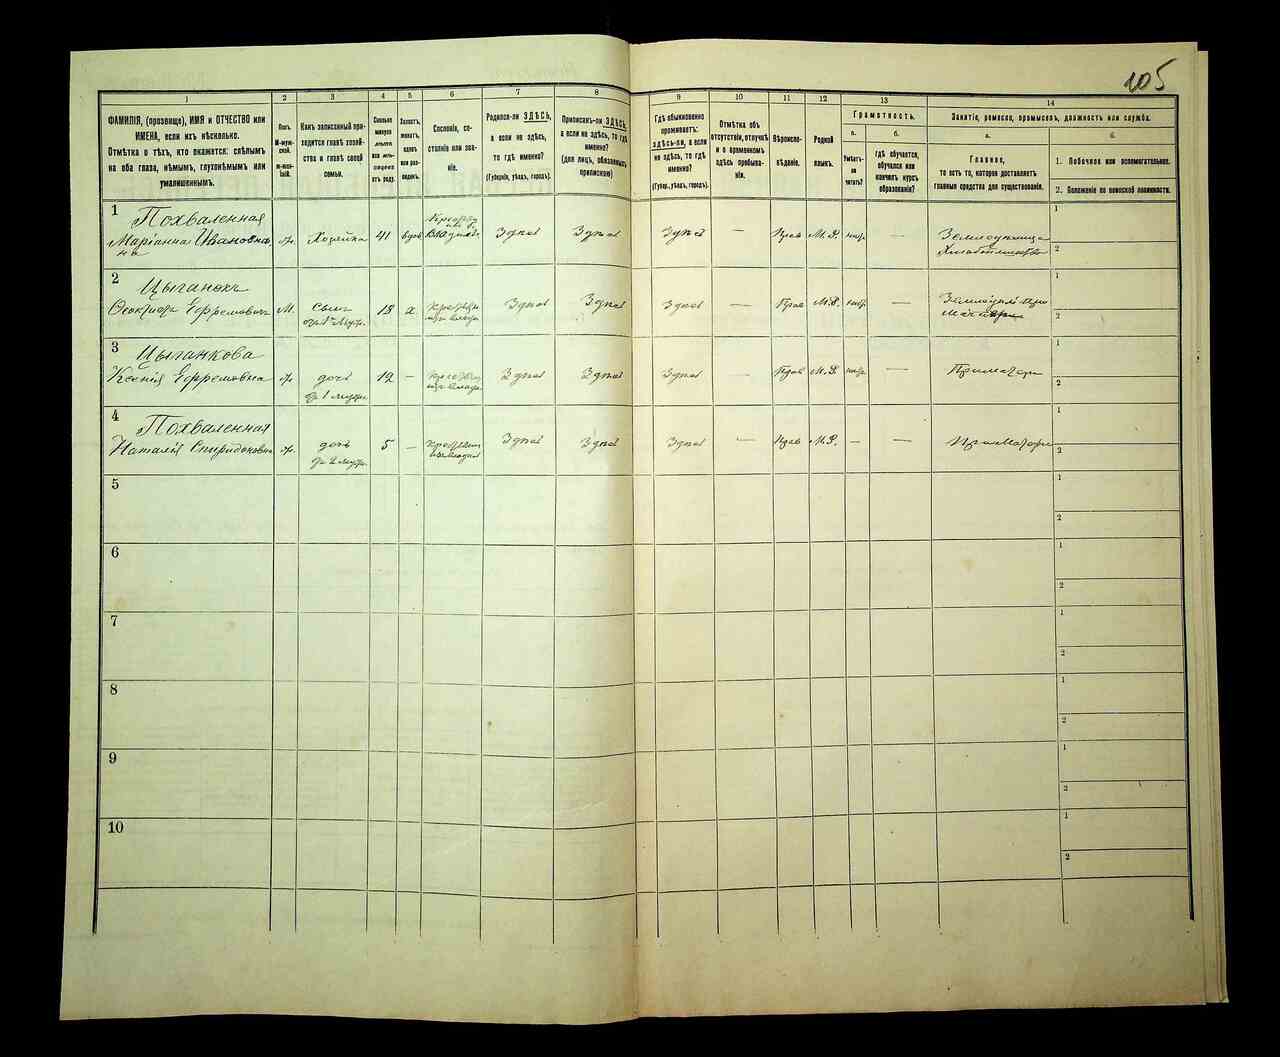 105
1
2
3
4
5
6
7
8
9
10
11
12
13
14
ФАМИЛІЯ, (прозвище), ИМЯ и ОТЧЕСТВО или
ИМЕНА, если ихъ нѣсколько.
Отмѣтка о тѣхъ, кто окажется: слѣпымъ
на оба глаза, нѣмымъ, глухонѣмымъ или
умалишеннымъ.
Полъ.
М-муж-
ской.
Ж-жен-
скій.
Какъ записанный при-
ходится главѣ хозяй-
ства и главѣ своей
семьи.
Сколько
минуло
лѣтъ
или мѣ-
сяцевъ
отъ роду.
Холостъ,
женатъ,
вдовъ
или раз-
веденъ.
Сословіе, со-
стояніе или зва-
ніе.
Родился-ли ЗДѢСЬ,
а если не здѣсь,
то гдѣ именно?
(Губернія, уѣздъ, городъ).
Приписанъ-ли ЗДѢСЬ,
а если не здѣсь, то гдѣ
именно?
(для лицъ, обязанныхъ
припискою)
Гдѣ обыкновенно
проживаетъ:
здѣсь-ли, а если
не здѣсь, то гдѣ
именно?
(Губер., уѣздъ, городъ).
Отмѣтка объ
отсутствіи, отлучкѣ
и о временномъ
здѣсь пребыва-
ніи.
Вѣроиспо-
вѣданіе.
Родной
языкъ.
Грамотность.
а.
Умѣетъ-
ли
читать?
б.
гдѣ обучается,
обучался или
кончилъ курсъ
образованія?
Занятіе, ремесло, промыселъ, должность или служба.
а.
Главное,
то есть то, которое доставляетъ
главныя средства для существованія.
б.
1. Побочное или вспомогательное.
2. Положеніе по воинской повинности.
1
Похваленная
Маріанна Ивановна
ж. Хозяйка 41 вдов
Здѣсь Здѣсь Здѣсь — Прав М.Р.
1
2
2
Цыганокъ
Ефремовичъ М. Сынъ 18 х
Здѣсь Здѣсь Здѣсь — Прав М.Р. —
1
2
3
Цыганкова
Ксенія Ефремовна ж. дочь 12 — Здѣсь Здѣсь Здѣсь — Прав М.Р. —
1
2
4
Похваленная
Наталія Спиридоновна ж. дочь 5 — Здѣсь Здѣсь Здѣсь — Прав М.Р. — — При матери
1
2
5
1
2
6
1
2
7
1
2
8
1
2
9
1
2
10
1
2